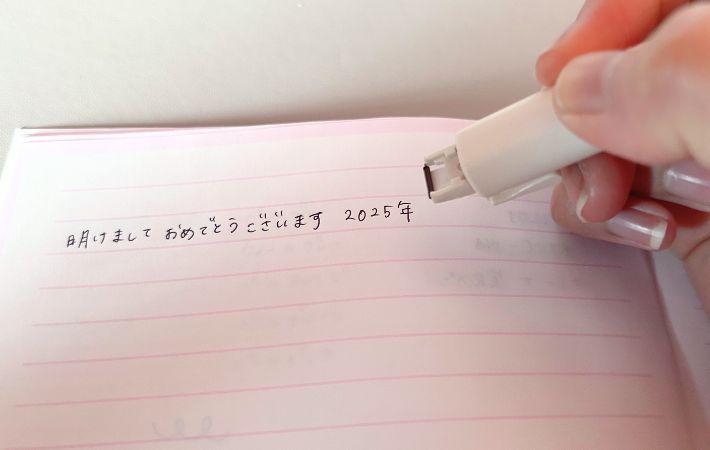 明けまして おめでとうございます 2025年